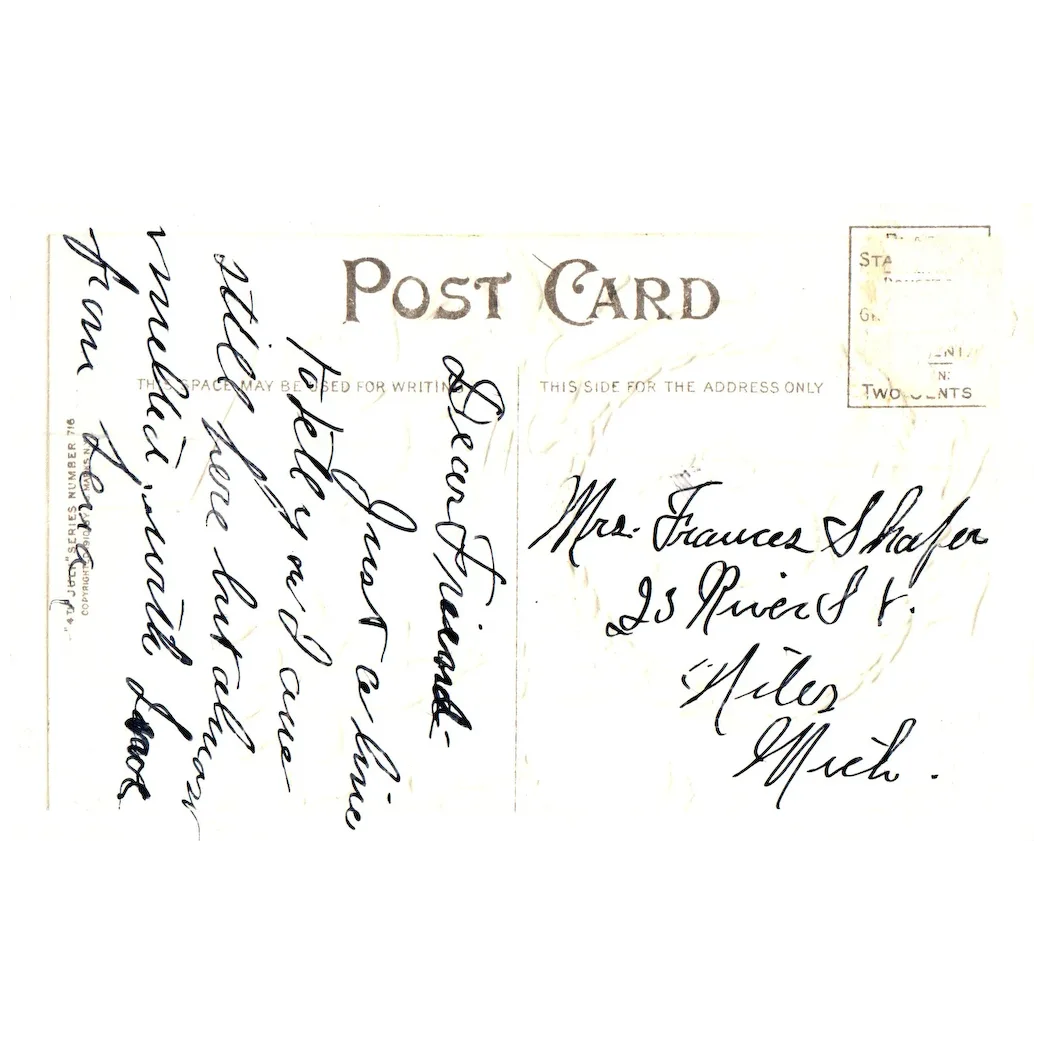 POST CARD
THIS SPACE MAY BE USED FOR WRITING
THIS SIDE FOR THE ADDRESS ONLY
STA
TWO CENTS
Dear Friend-
Just a line
to tell you I am
still here but almost
melted, with love
from Lena
Mrs. Frances Shafer
23 River St.
Niles
Mich.
"4TH JULY" SERIES NUMBER 716
COPYRIGHT